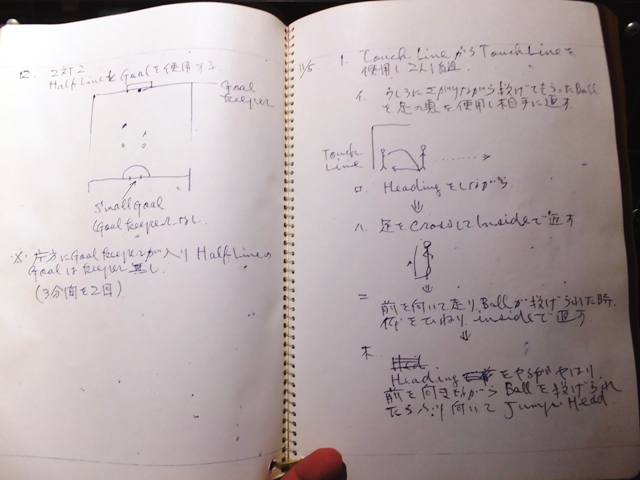 ロ. 2対2
Half LineとGoalを使用する
Goal
keeper
Small Goal
(Goal keeperなし.
※ 片方にGoal keeperが入り Half Lineの
Goalはkeeper無し
(3分間を2回)
11/5. 1. Touch LineからTouch Lineを
使用し2人1組.
イ. うしろにさがりながら投げてもらったBall
を足の裏を使用し相手に返す
Touch
Line
ロ Headingをしながら
⇓
ハ 足をCrossしてInsideで返す
⇓
ニ
前を向いて走り, Ballが投げられた時,
体をひねり, insideで返す
⇓
ホ
Heading をやるがやはり,
前を向きながら Ballを投げられ
たらふり向いて Jump Head